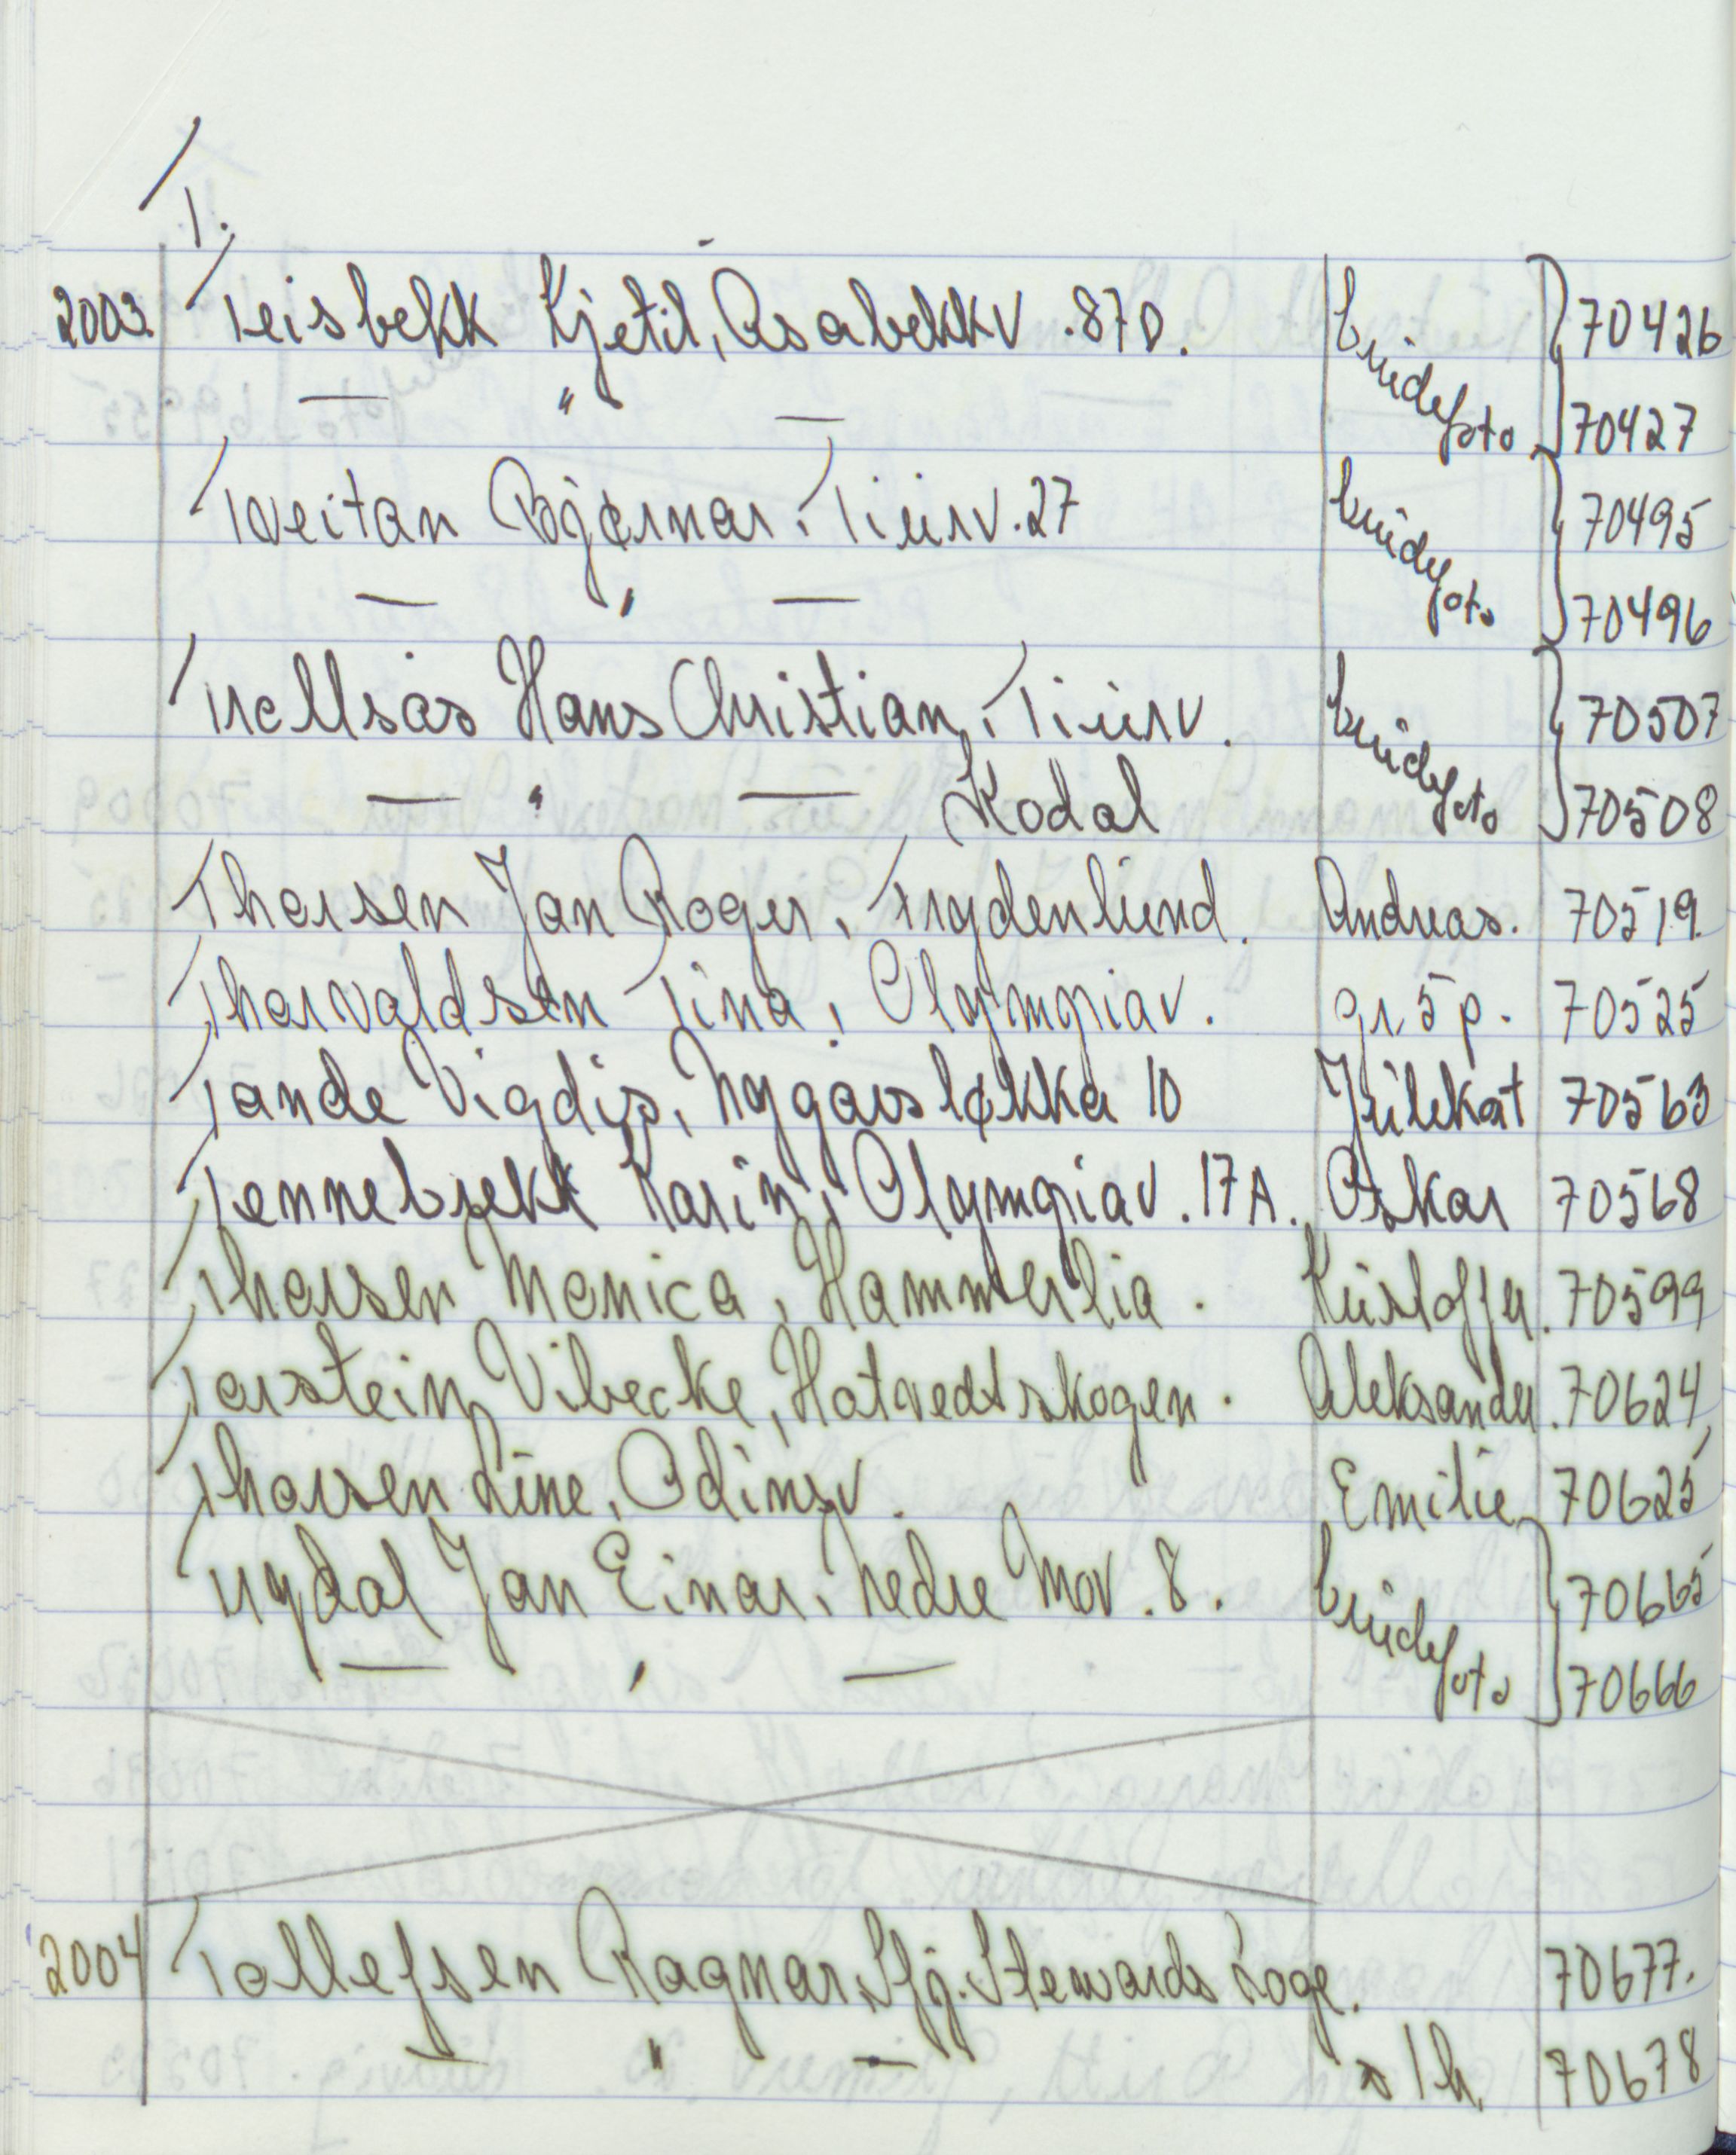 T.
2003. Teisbekk Kjetil, Åsabekkv. 87D. brudefoto 70426
— " — 70427
Tveitan Bjørnar, Tiurv. 27 brudefoto 70495
— " — 70496
Trollsås Hans Christian, Tiurv. brudefoto 70507
— " — Kodal 70508
Thorsen Jan Roger, Frydenlund. Andreas. 70519.
Thorvaldsen Tina, Olympiav. gr 5 p. 70525
Tande Vigdis, Nygårsløkka 10 Julekat 70563
Tennebrekk Karin, Olympiav. 17A. Oskar 70568
Thorsen Monica, Hammerlia. Kristoffer. 70599
Torstein Vibecke, Hotvedtskogen. Aleksander. 70624
Thorsen Line, Odinsv. Emilie 70625
Trydal Jan Einar, Nedre Mov. 8. brudefoto 70665
— " — 70666
2004 Tollefsen Ragnar, Sfj. Stewards Loge. 70677.
— " — s/h. 70678